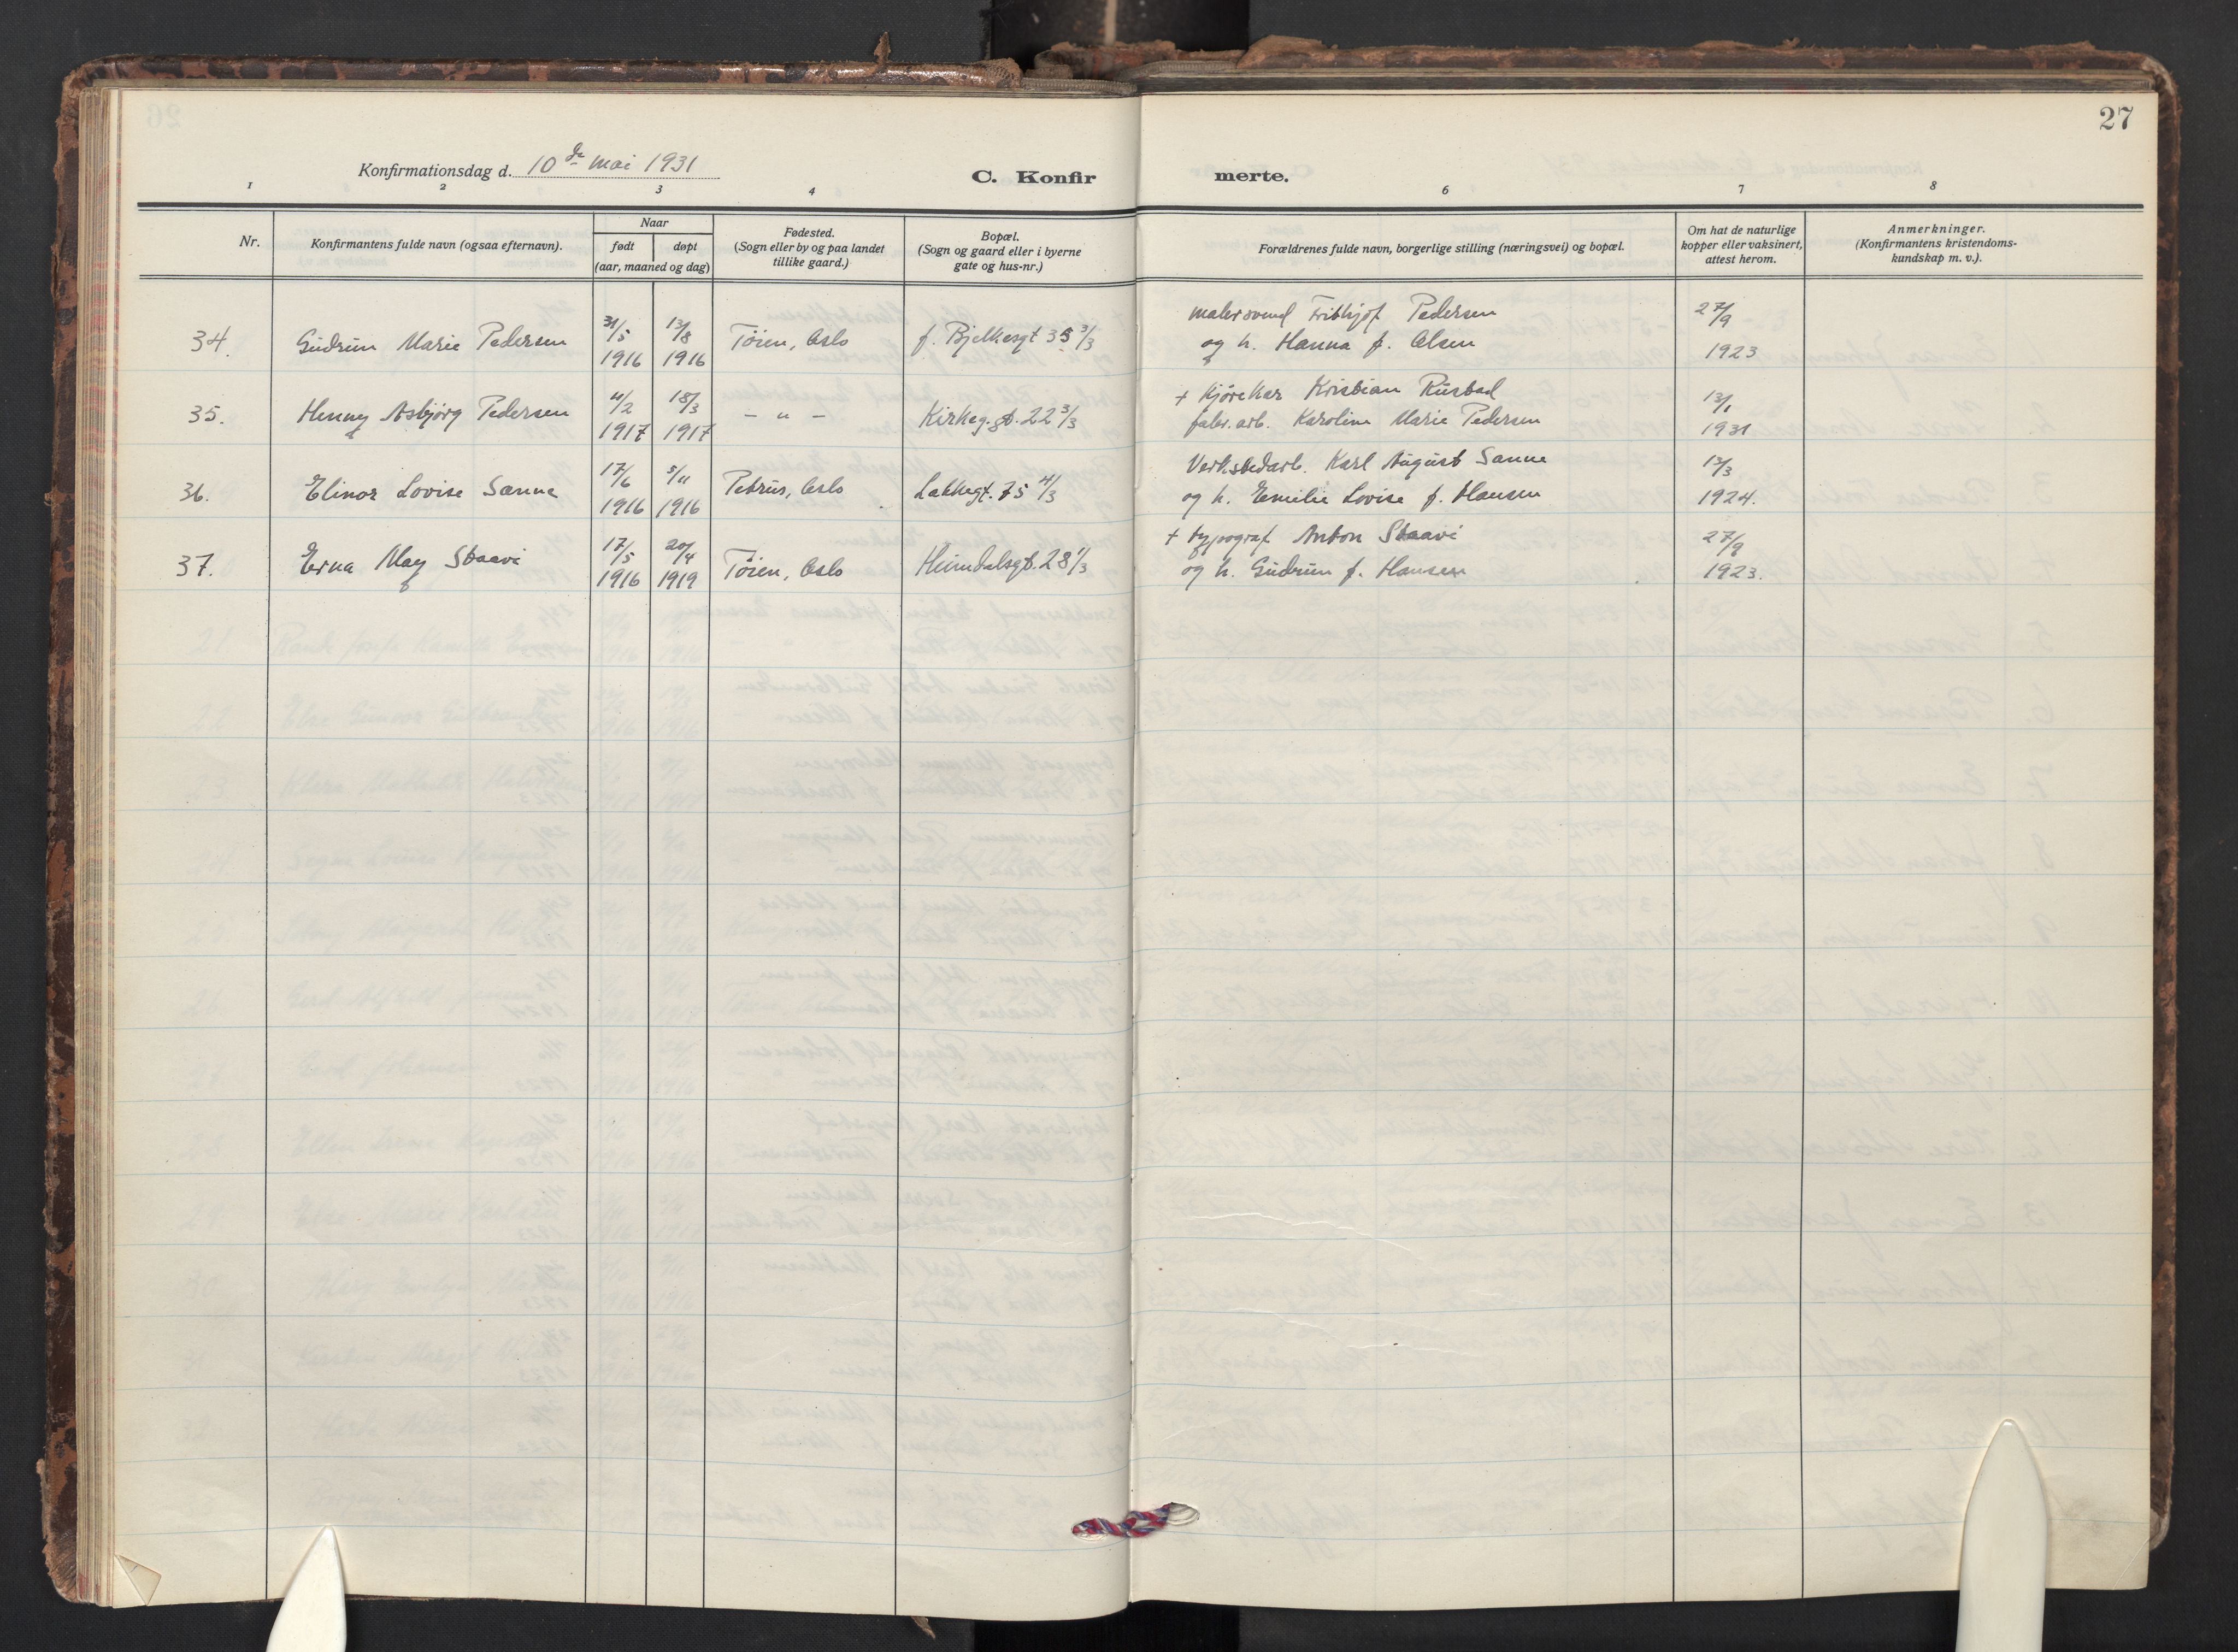 27
Konfirmationsdag d. 10de mai 1931
C. Konfir merte.
1 2 3 4 6 7 8
Nr.
Konfirmantens fulde navn (ogsaa efternavn).
Naar
født døpt
(aar, maaned og dag)
Fødested.
(Sogn eller by og paa landet
tillike gaard.)
Bopæl.
(Sogn og gaard eller i byerne
gate og hus-nr.)
Forældrenes fulde navn, borgerlige stilling (næringsvei) og bopæl.
Om hat de naturlige
kopper eller vaksinert,
attest herom.
Anmerkninger.
(Konfirmantens kristendoms-
kundskap m. v.).
malersvend Frithjof Pedersen
34. Gudrun Marie Pedersen 31/5 1916 13/8 1916 Tøien, Oslo J. Bjelkesgt 35 3/3
og h. Hanna f. Olsen
27/9 1923
+ Kjørekar Kristian Rustad
35. Henny Asbjørg Pedersen 4/2 1917 18/3 1917 – " – Kirkeg.gt. 22 3/3
fabr. arb. Karoline Marie Pedersen
13/1 1931
Verkstedarb. Karl August Sanne
36. Elinor Lovise Sanne 17/6 1916 5/11 1916 Petrus, Oslo Lakkegt. 75 4/3
og h. Emilie Lovise f. Hansen
13/3 1924.
+ typograf Anton Staavi
37. Erna May Staavi 17/5 1916 20/4 1919 Tøien, Oslo Heimdalsgt. 28 1/3
og h. Gudrun f. Hansen
27/9 1923.